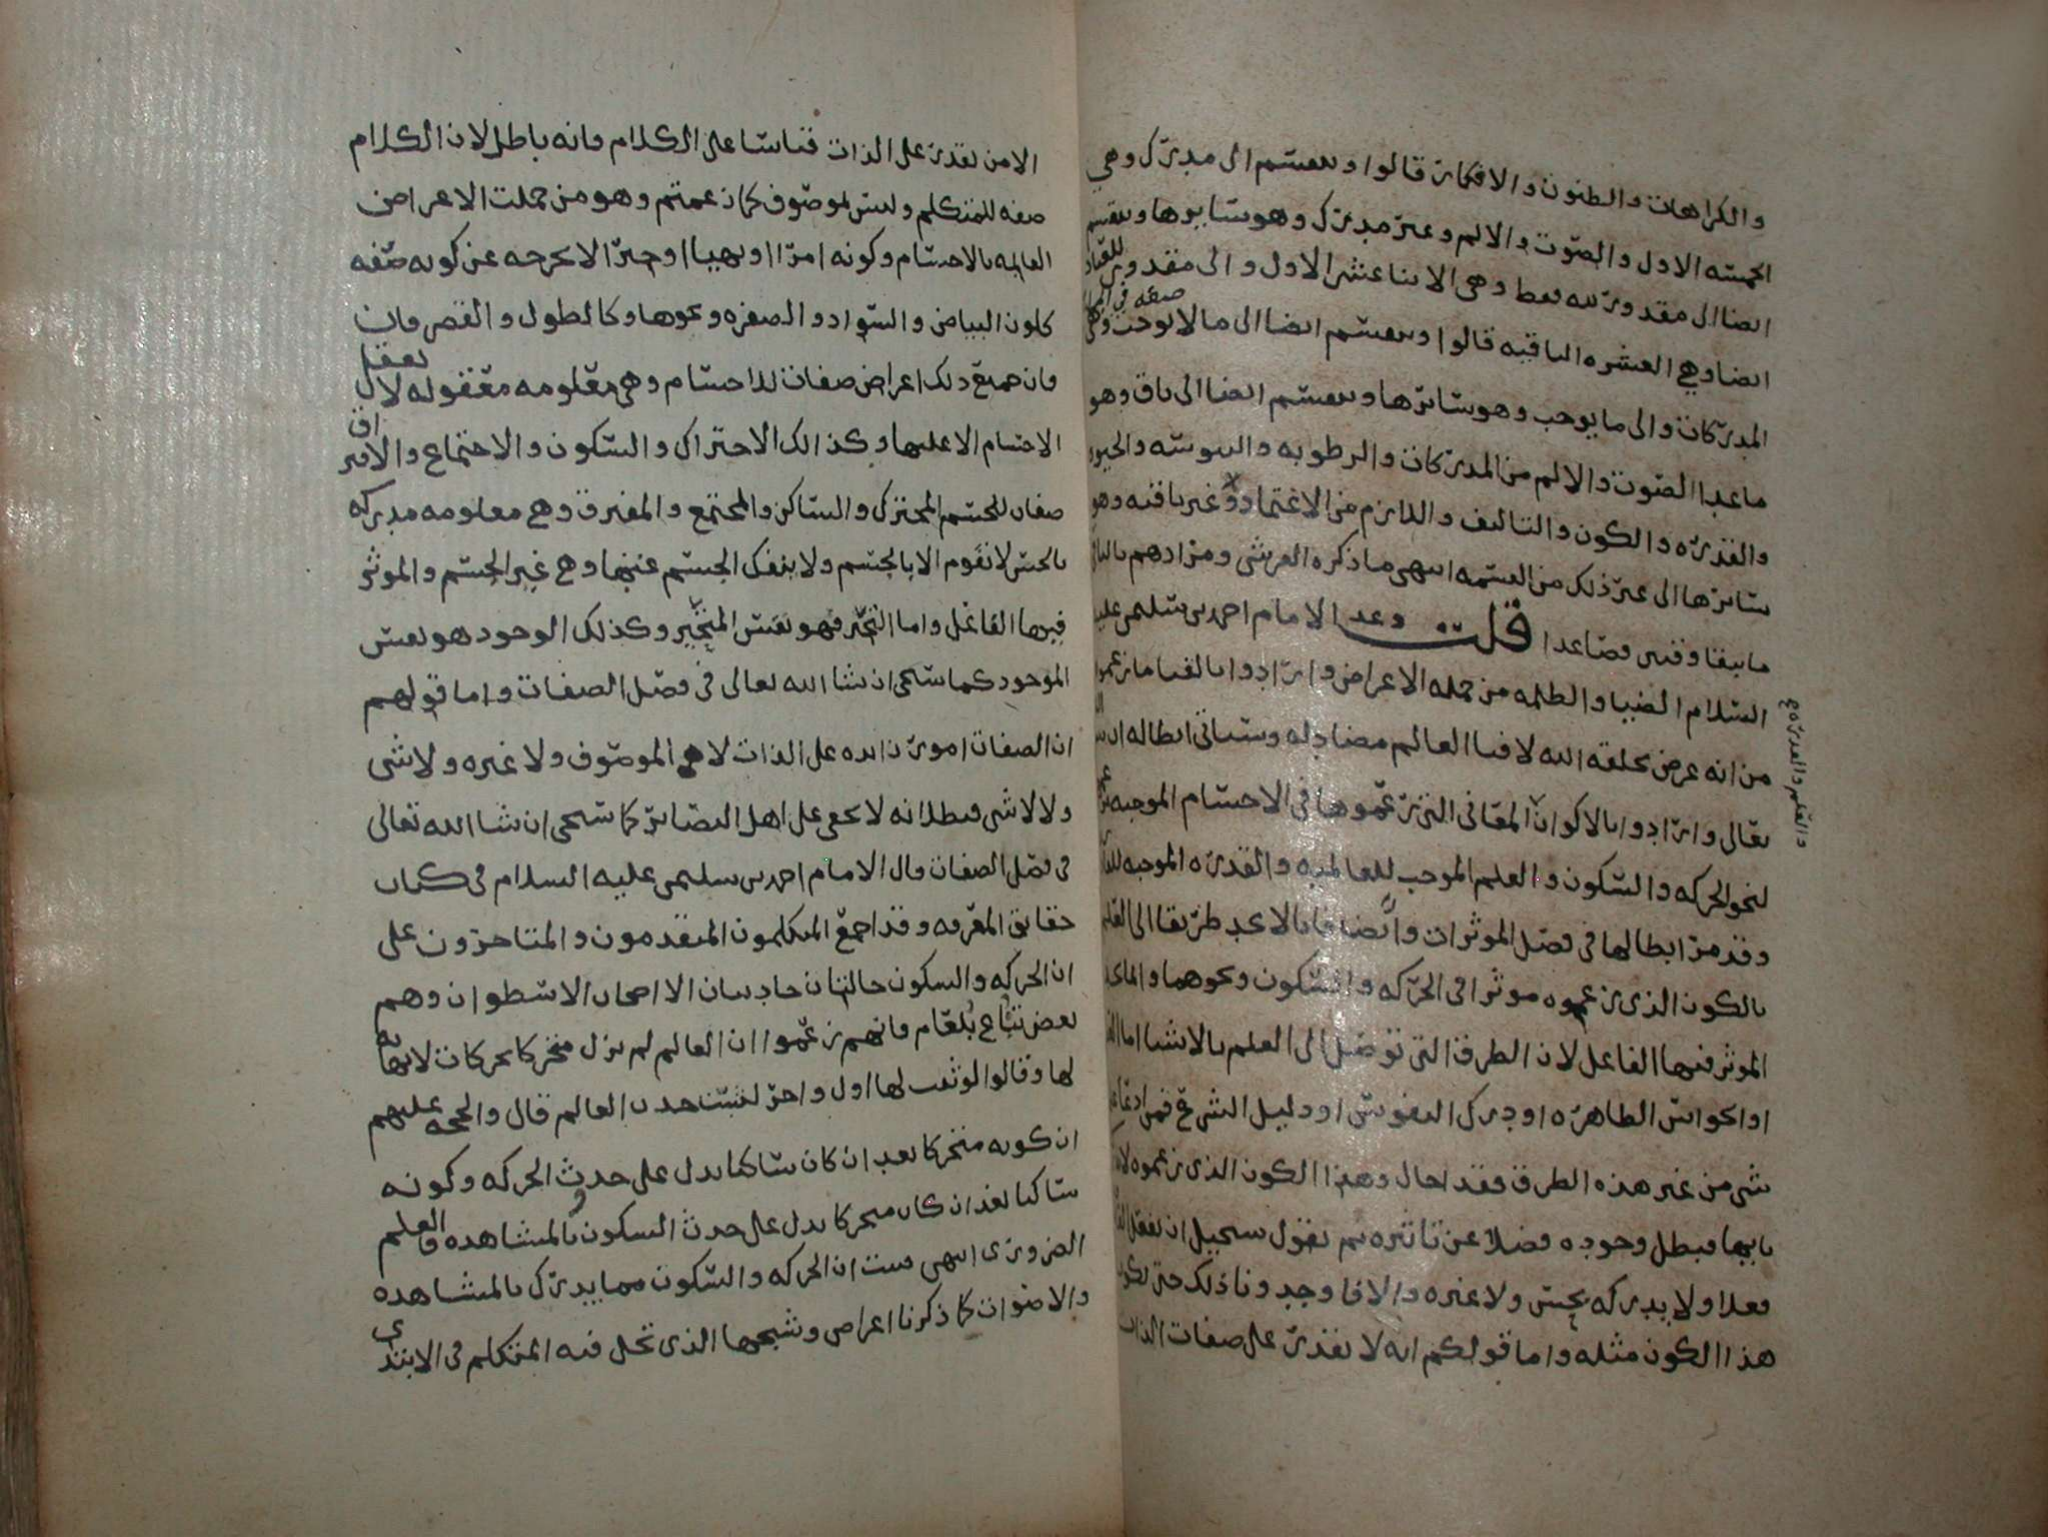 والكراهات والظنون والافكار قالوا وينقسم الى مدرك وهي
الخمسه الاول والصوت والالم وغير مدرك وهو سايرها وينقسم
ايضا الى مقدور لله فقط وهي الاثنا عشر الاول والى مقدور للعباد
ايضا وهي العشره الباقيه قالوا وينقسم ايضا الى ما لا يوجب صفه في
المدركات والى ما يوجب وهو سايرها وينقسم ايضا الى باق وهو
ما عدا الصوت والالم من المدركات والرطوبه واليبوسه والحيوه
والقدره والكون والتاليف واللازم من الاعتماد وغير باق وهو
سايرها الى غير ذلك من القسمه انتهى ما ذكره القرشي ومرادهم بالباقي
ما يبقا وقتين فصاعدا قلت وعد الامام احمد بن سليمن عليه
السلام الضيا والظلمه من جمله الاعراض وارادوا بالفنا ما زعموا
من انه عرض يخلقه الله لافنا العالم مضاد له وسياتي ابطاله ان شا الله
تعالى وارادوا بالاكوان المعاني التي زعموها في الاجسام الموجبه
لنحو الحركه والسكون والعلم الموجب للعالميه والقدره الموجبه
والعلم والقدره
وقد مر ابطالها في فصل الموثرات وايضا فانا لا نجد طريقا الى العلم
بالكون الذي زعموه موثرا في الحركه والسكون ونحوهما وانما نجد
الموثر فيها الفاعل لان الطرق التي توصل الى العلم بالاشيا اما
او الحواس الظاهره او درك النفوس او دليل الشرع فمن ادعا
شي من غير هذه الطرق فقد احال وهذا الكون الذي زعموه
بايها فبطل وجوده فضلا عن تاثيره ثم نقول يستحيل ان يفعل
فعلا ولا يدركه بحس ولا غيره والا فاوجدونا ذلك حتى يكون
هذا الكون مثله واما قولكم انه لا يقدر على صفات الذات
الا من يقدر على الذات قياسا على الكلام فانه باطل لان الكلام
صفه للمتكلم وليس لموصوف كما زعمتم وهو من جملت الاعراض
القايمه بالاجسام وكونه امرا او نهيا او خبرا لا يخرجه عن كونه صفه
كلون البياض والسواد والصفره ونحوها وكالطول والقصر فان
فان جميع ذلك اعراض صفات للاجسام وهي معلومه معقوله لا تعقل
الاجسام الا عليها وكذالك الاحتراك والسكون والاجتماع والافتراق
صفات للجسم المحترك والساكن والمجتمع والمفترق وهي معلومه مدركه
بالحس لا تقوم الا بالجسم ولا ينفك الجسم عنها وهي غير الجسم والموثر
فيها الفاعل واما التحيز فهو نفس المتحيز وكذلك الوجود هو نفس
الموجود كما سيجي ان شا الله تعالى في فصل الصفات واما قولهم
ان الصفات امور زايده على الذات لا هي الموصوف ولا غيره ولا شي
ولا لا شي فبطلانه لا يخفى على اهل البصاير كما سيجي ان شا الله تعالى
في فصل الصفات قال الامام احمد بن سليمن عليه السلام في كتاب
حقايق المعرفه وقد اجمع المتكلمون المتقدمون والمتاخرون على
ان الحركه والسكون حالتان حادثتان الا اصحاب الاسطوان وهم
بعض تباع بلعام فانهم زعموا ان العالم لم يزل متحركا بحركات لا نهايه
لها وقالوا لو ثبت لها اول واخر لثبت حدث العالم قال والحجه عليهم
ان كونه متحركا بعد ان كان ساكنا يدل على حدث الحركه وكونه
ساكنا بعد ان كان متحركا يدل على حدث السكون بالمشاهده والعلم
الضروري انتهى فثبت ان الحركه والسكون مما يدرك بالمشاهده
والاصوات كما ذكرنا اعراض وشبحها الذي تحل فيه المتكلم في الابتدي